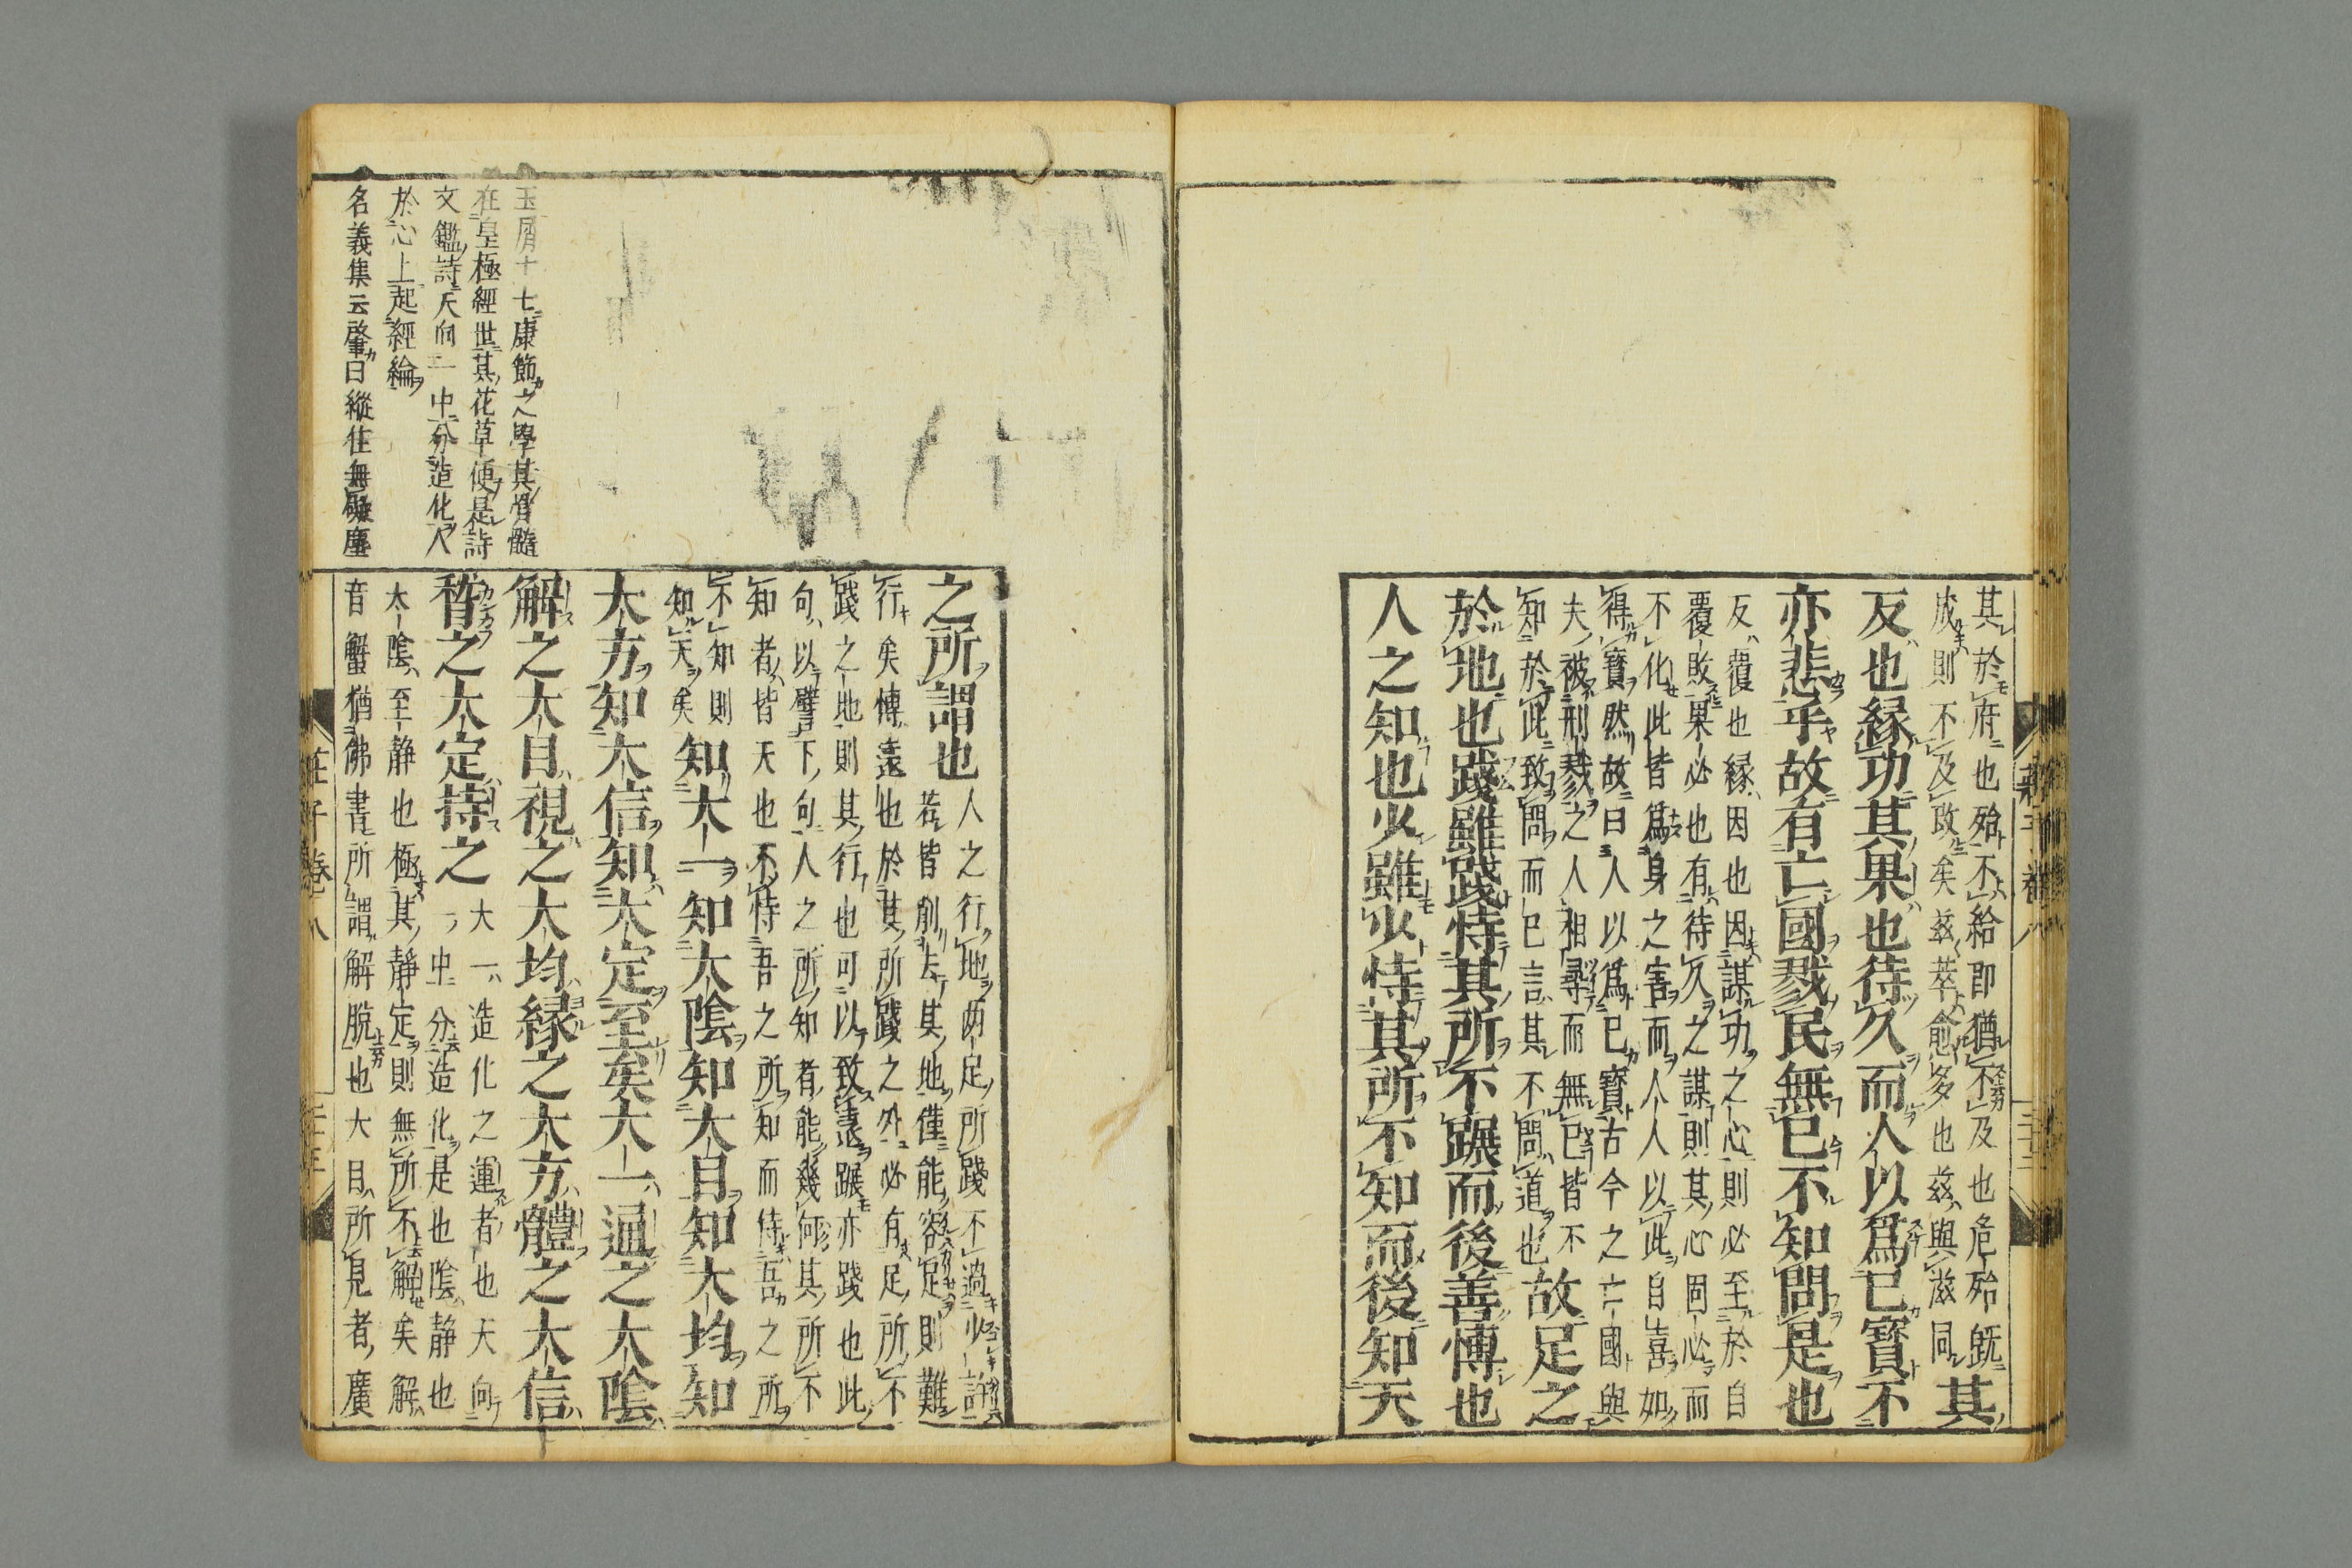 其於府也殆不給即猶不及也危殆既
成則不及改矣茲萃愈多也茲與滋同
其
反也緣功其果也待久而人以爲已寶不
亦悲乎故有亡國戮民無已不知問是也
反覆也緣因也因謀功之心則必至於自
覆敗果必也有待久之謀則其心固必而
不化此皆爲身之害而人人以此自喜如
得寶然故曰人以爲已寶古今之亡國與
夫被刑戮之人相尋而無已皆不
知於此致問而已言其不問道也
故足之
於地也踐雖踐恃其所不蹍而後善博也
人之知也少雖少恃其所不知而後知天
之所謂也
人之行地兩足所踐不過少許
若皆削去其地僅能容足則難
行矣博遠也於其所踐之外必有足所不
踐之地則其行也可以致遠蹍亦踐也此
句以譬下句人之所知者能幾何其所不
知者皆天也不恃吾之所知而恃吾之所
不知則
知天矣
知大一知大陰知大目知大均知
大方知大信知大定至矣大一通之大陰
解之大目視之大均緣之大方體之大信
稽之大定持之
大一造化之運者也天向
一中分造化是也陰靜也
太陰至靜也極其靜定則無所不解矣解
音蟹猶佛書所謂解脫也大目所見者廣
玉屑十七康節之學其骨髓
在皇極經世其花草便是詩
文鑑詩天向一中分造化人
於心上起經綸
名義集云肇曰縱任無礙塵
莊子 卷八